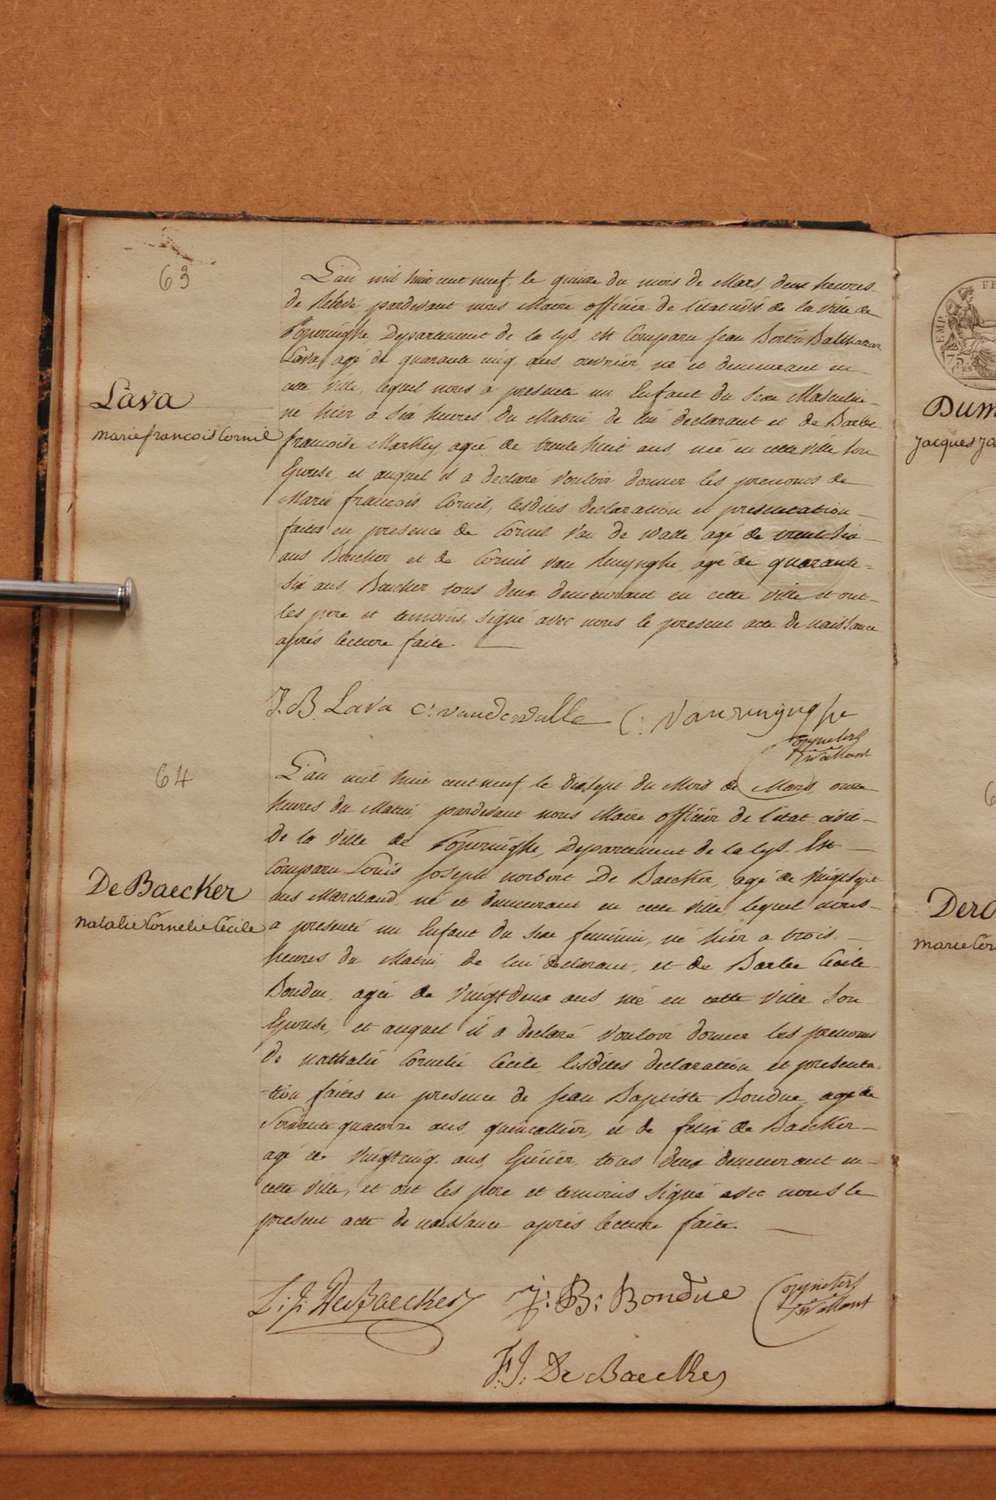 63
L'an mil huit cent neuf le quinze du mois de Mars, deux heures
de relevé pardevant nous Maire officier de l'etat civil de la Ville de
Poperinghe, Departement de la lys est Comparu Jean Bonté Balthazar
Lava, agé de quarante cinq ans, ouvrier, né et demeurant en
cette Ville, lequel nous a presenté un Enfant du Sexe Masculin
Lava
marie francois Cornil
né hier à Six heures du Matin de lui declarant et de Barbe
francoise Merkey agée de trente huit ans, née en cette Ville Son
Epouse, et auquel il a declaré Vouloir donner les prenoms de
Marie francois Cornil, lesdites declaration et presentation
faites en presence de Cornil Van de walle agé de trente Six
ans Boucher et de Cornil Van renynghe, agé de quarante
Six ans, Boucher tous deux demeurant en cette Ville et ont
les pere et temoins, Signé avec nous le present acte de naissance
après lecture faite.
J. B. Lava C: vandewalle C: Vanrenynghe
64
L'an mil huit cent neuf le dix sept du Mois de Mars onze
heures du Matin, pardevant nous Maire officier de l'etat civil
de la Ville de Poperinghe, Departement de la lys Est
Comparu Louis Joseph norbert De Baecker, agé de Vingt Sept
De Baecker
natalie Cornelie Cécile
ans Marchand, né et demeurant en cette Ville lequel nous
a presenté un Enfant du Sexe feminin, né hier a trois
heures du Matin, de lui declarant, et de Barbe Cecile
Bondue, agée de Vingt deux ans née en cette Ville Son
Epouse, et auquel il a declaré Vouloir donner les prenoms
de nathalie Cornelie Cecile, lesdites declaration et presenta
tion faites en presence de Jean Baptiste Bondue, agé de
Soixante quatorze ans quincallier, et de felix de Baecker
agé de Vingt cinq ans, Epicier, tous deux demeurant en
cette Ville, et ont les pere et temoins Signé avec nous le
present acte de naissance après lecture faite.
L: J: De Baecker J: B: Bondue
F. J. De Baecker
Dum
Jacques Ja
Dero
marie Cor